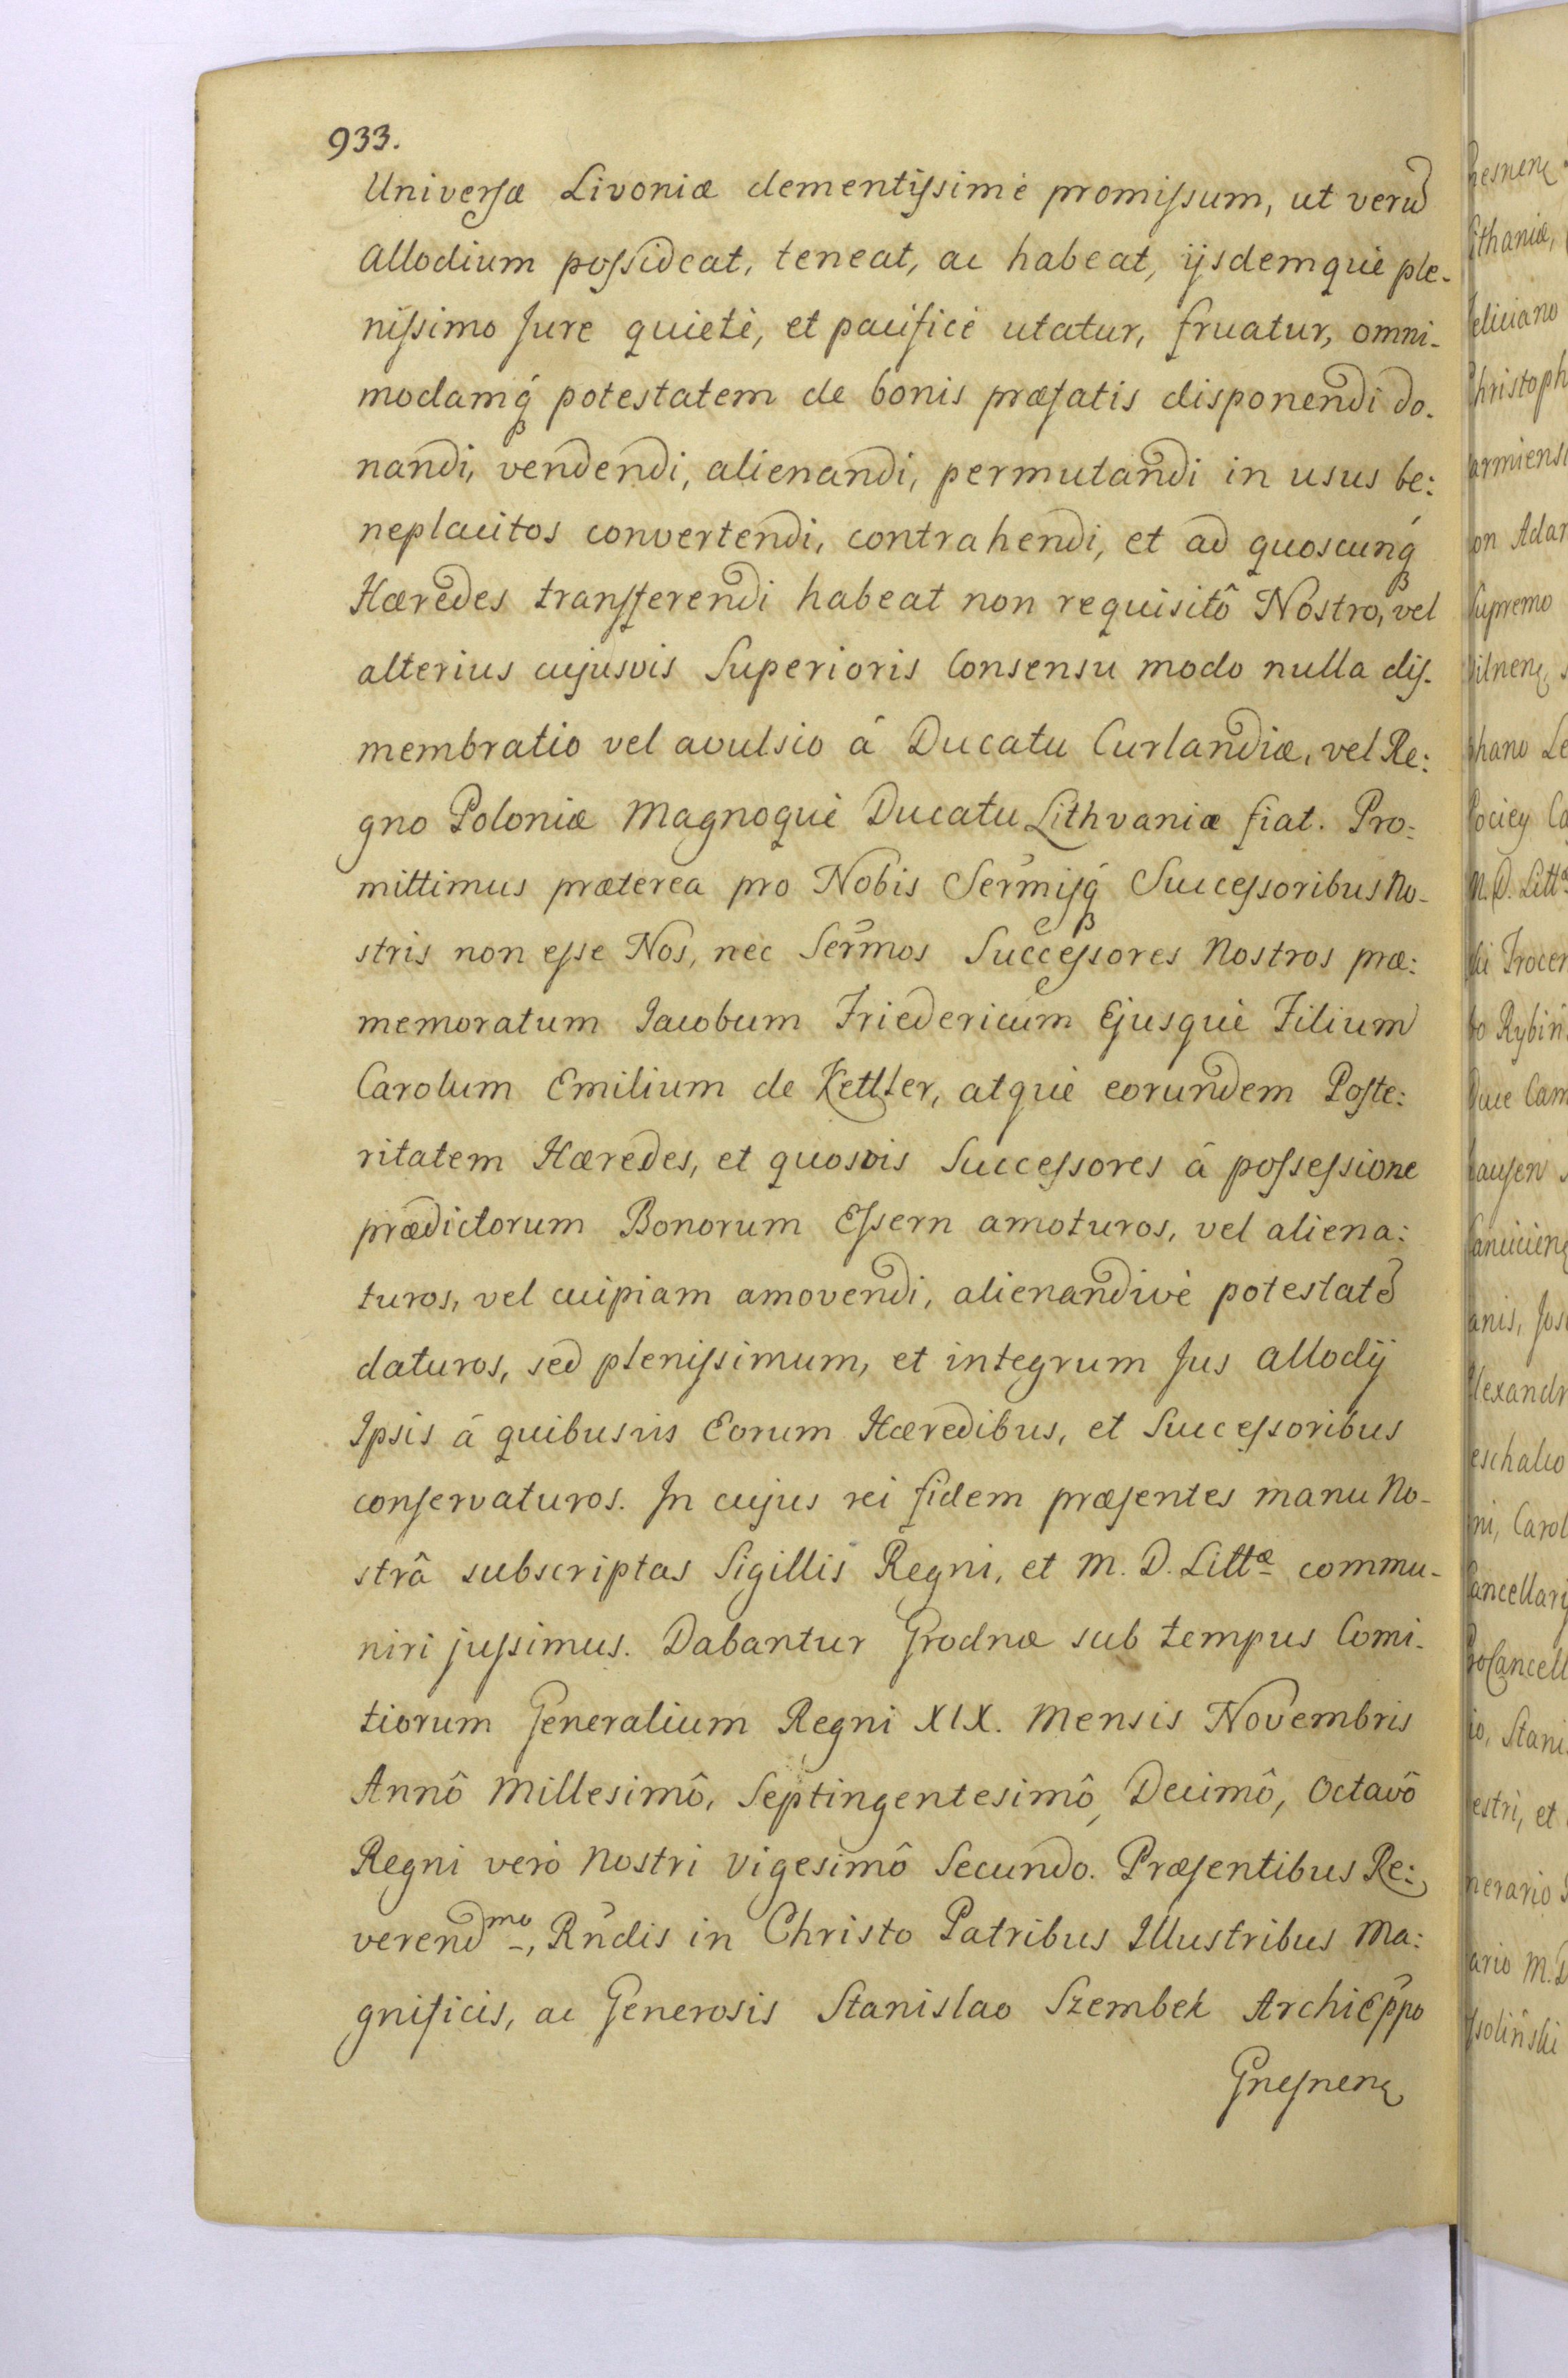 933.
Universæ Livoniæ clementissimè promissum, ut verũ
Allodium possideat, teneat, ac habeat, ijsdemquè ple-
nissimo Jure quietè, et pacificè utatur, fruatur, omni-
modamq́ potestatem de bonis præfatis disponendi do-
nandi, vendendi, alienandi, permutandi in usus be:
neplacitos convertendi, contrahendi, et ad quoscunq́
Hæredes transferendi habeat non requisitô Nostro, vel
alterius cujusvis Superioris Consensu modo nulla dis-
membratio vel avulsio â Ducatu Curlandiæ, vel Re:
gno Poloniæ Magnoquè Ducatu Lithvaniæ fiat. Pro:
mittimus præterea pro Nobis Serm̃isq́ Successoribus No-
stris non esse Nos, nec Serm̃os Successores Nostros præ:
memoratum Jacobum Friedericum Ejusquè Filium
Carolum Emilium de Kettler, atquè eorundem Poste:
ritatem Hæredes, et quosvis Successores â possessione
prædictorum Bonorum Essern amoturos, vel aliena:
turos, vel cuipiam amovendi, alienandivè potestatẽ
daturos, sed plenissimum, et integrum Jus Allodij
Ipsis â quibusvis Eorum Hæredibus, et Successoribus
conservaturos. In cujus rei fidem præsentes manu No-
strâ subscriptas Sigillis Regni, et M. D. Littæ commu-
niri jussimus. Dabantur Grodnæ sub tempus Comi-
tiorum Generalium Regni XIX. Mensis Novembris
Annô Millesimô, Septingentesimô, Decimô, Octavô
Regni verò Nostri Vigesimô Secundo. Præsentibus Re:
verendmo, Rñdis in Christo Patribus Illustribus Ma:
gnificis, ac Generosis Stanislao Szembek Archiepp̃o
Gnesnen